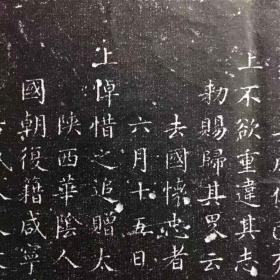 上不欲重違其志
勅賜歸其畧云
去國懷忠者
六月十五日
上悼惜之追贈太
陝西華陰人
國朝復籍咸寧